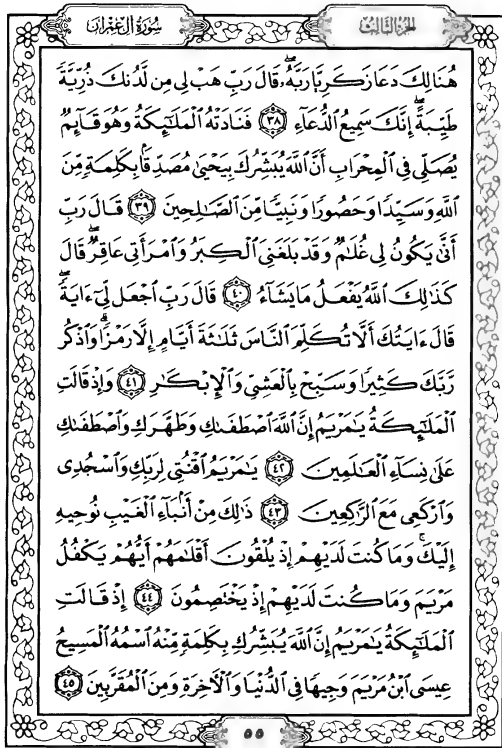 سُورَةُ آلِ عِمْرَان
الجزء الثالث
هُنَالِكَ دَعَا زَكَرِيَّا رَبَّهُۥ ۖ قَالَ رَبِّ هَبْ لِى مِن لَّدُنكَ ذُرِّيَّةً
طَيِّبَةً ۖ إِنَّكَ سَمِيعُ ٱلدُّعَآءِ ﴿٣٨﴾ فَنَادَتْهُ ٱلْمَلَـٰٓئِكَةُ وَهُوَ قَآئِمٌ
يُصَلِّى فِى ٱلْمِحْرَابِ أَنَّ ٱللَّهَ يُبَشِّرُكَ بِيَحْيَىٰ مُصَدِّقًۢا بِكَلِمَةٍ مِّنَ
ٱللَّهِ وَسَيِّدًا وَحَصُورًا وَنَبِيًّا مِّنَ ٱلصَّـٰلِحِينَ ﴿٣٩﴾ قَالَ رَبِّ
أَنَّىٰ يَكُونُ لِى غُلَـٰمٌ وَقَدْ بَلَغَنِىَ ٱلْكِبَرُ وَٱمْرَأَتِى عَاقِرٌ ۖ قَالَ
كَذَٰلِكَ ٱللَّهُ يَفْعَلُ مَا يَشَآءُ ﴿٤٠﴾ قَالَ رَبِّ ٱجْعَل لِّىٓ ءَايَةً ۖ
قَالَ ءَايَتُكَ أَلَّا تُكَلِّمَ ٱلنَّاسَ ثَلَـٰثَةَ أَيَّامٍ إِلَّا رَمْزًا ۗ وَٱذْكُر
رَّبَّكَ كَثِيرًا وَسَبِّحْ بِٱلْعَشِىِّ وَٱلْإِبْكَـٰرِ ﴿٤١﴾ وَإِذْ قَالَتِ
ٱلْمَلَـٰٓئِكَةُ يَـٰمَرْيَمُ إِنَّ ٱللَّهَ ٱصْطَفَىٰكِ وَطَهَّرَكِ وَٱصْطَفَىٰكِ
عَلَىٰ نِسَآءِ ٱلْعَـٰلَمِينَ ﴿٤٢﴾ يَـٰمَرْيَمُ ٱقْنُتِى لِرَبِّكِ وَٱسْجُدِى
وَٱرْكَعِى مَعَ ٱلرَّٰكِعِينَ ﴿٤٣﴾ ذَٰلِكَ مِنْ أَنۢبَآءِ ٱلْغَيْبِ نُوحِيهِ
إِلَيْكَ ۚ وَمَا كُنتَ لَدَيْهِمْ إِذْ يُلْقُونَ أَقْلَـٰمَهُمْ أَيُّهُمْ يَكْفُلُ
مَرْيَمَ وَمَا كُنتَ لَدَيْهِمْ إِذْ يَخْتَصِمُونَ ﴿٤٤﴾ إِذْ قَالَتِ
ٱلْمَلَـٰٓئِكَةُ يَـٰمَرْيَمُ إِنَّ ٱللَّهَ يُبَشِّرُكِ بِكَلِمَةٍ مِّنْهُ ٱسْمُهُ ٱلْمَسِيحُ
عِيسَى ٱبْنُ مَرْيَمَ وَجِيهًا فِى ٱلدُّنْيَا وَٱلْـَٔاخِرَةِ وَمِنَ ٱلْمُقَرَّبِينَ ﴿٤٥﴾
٥٥